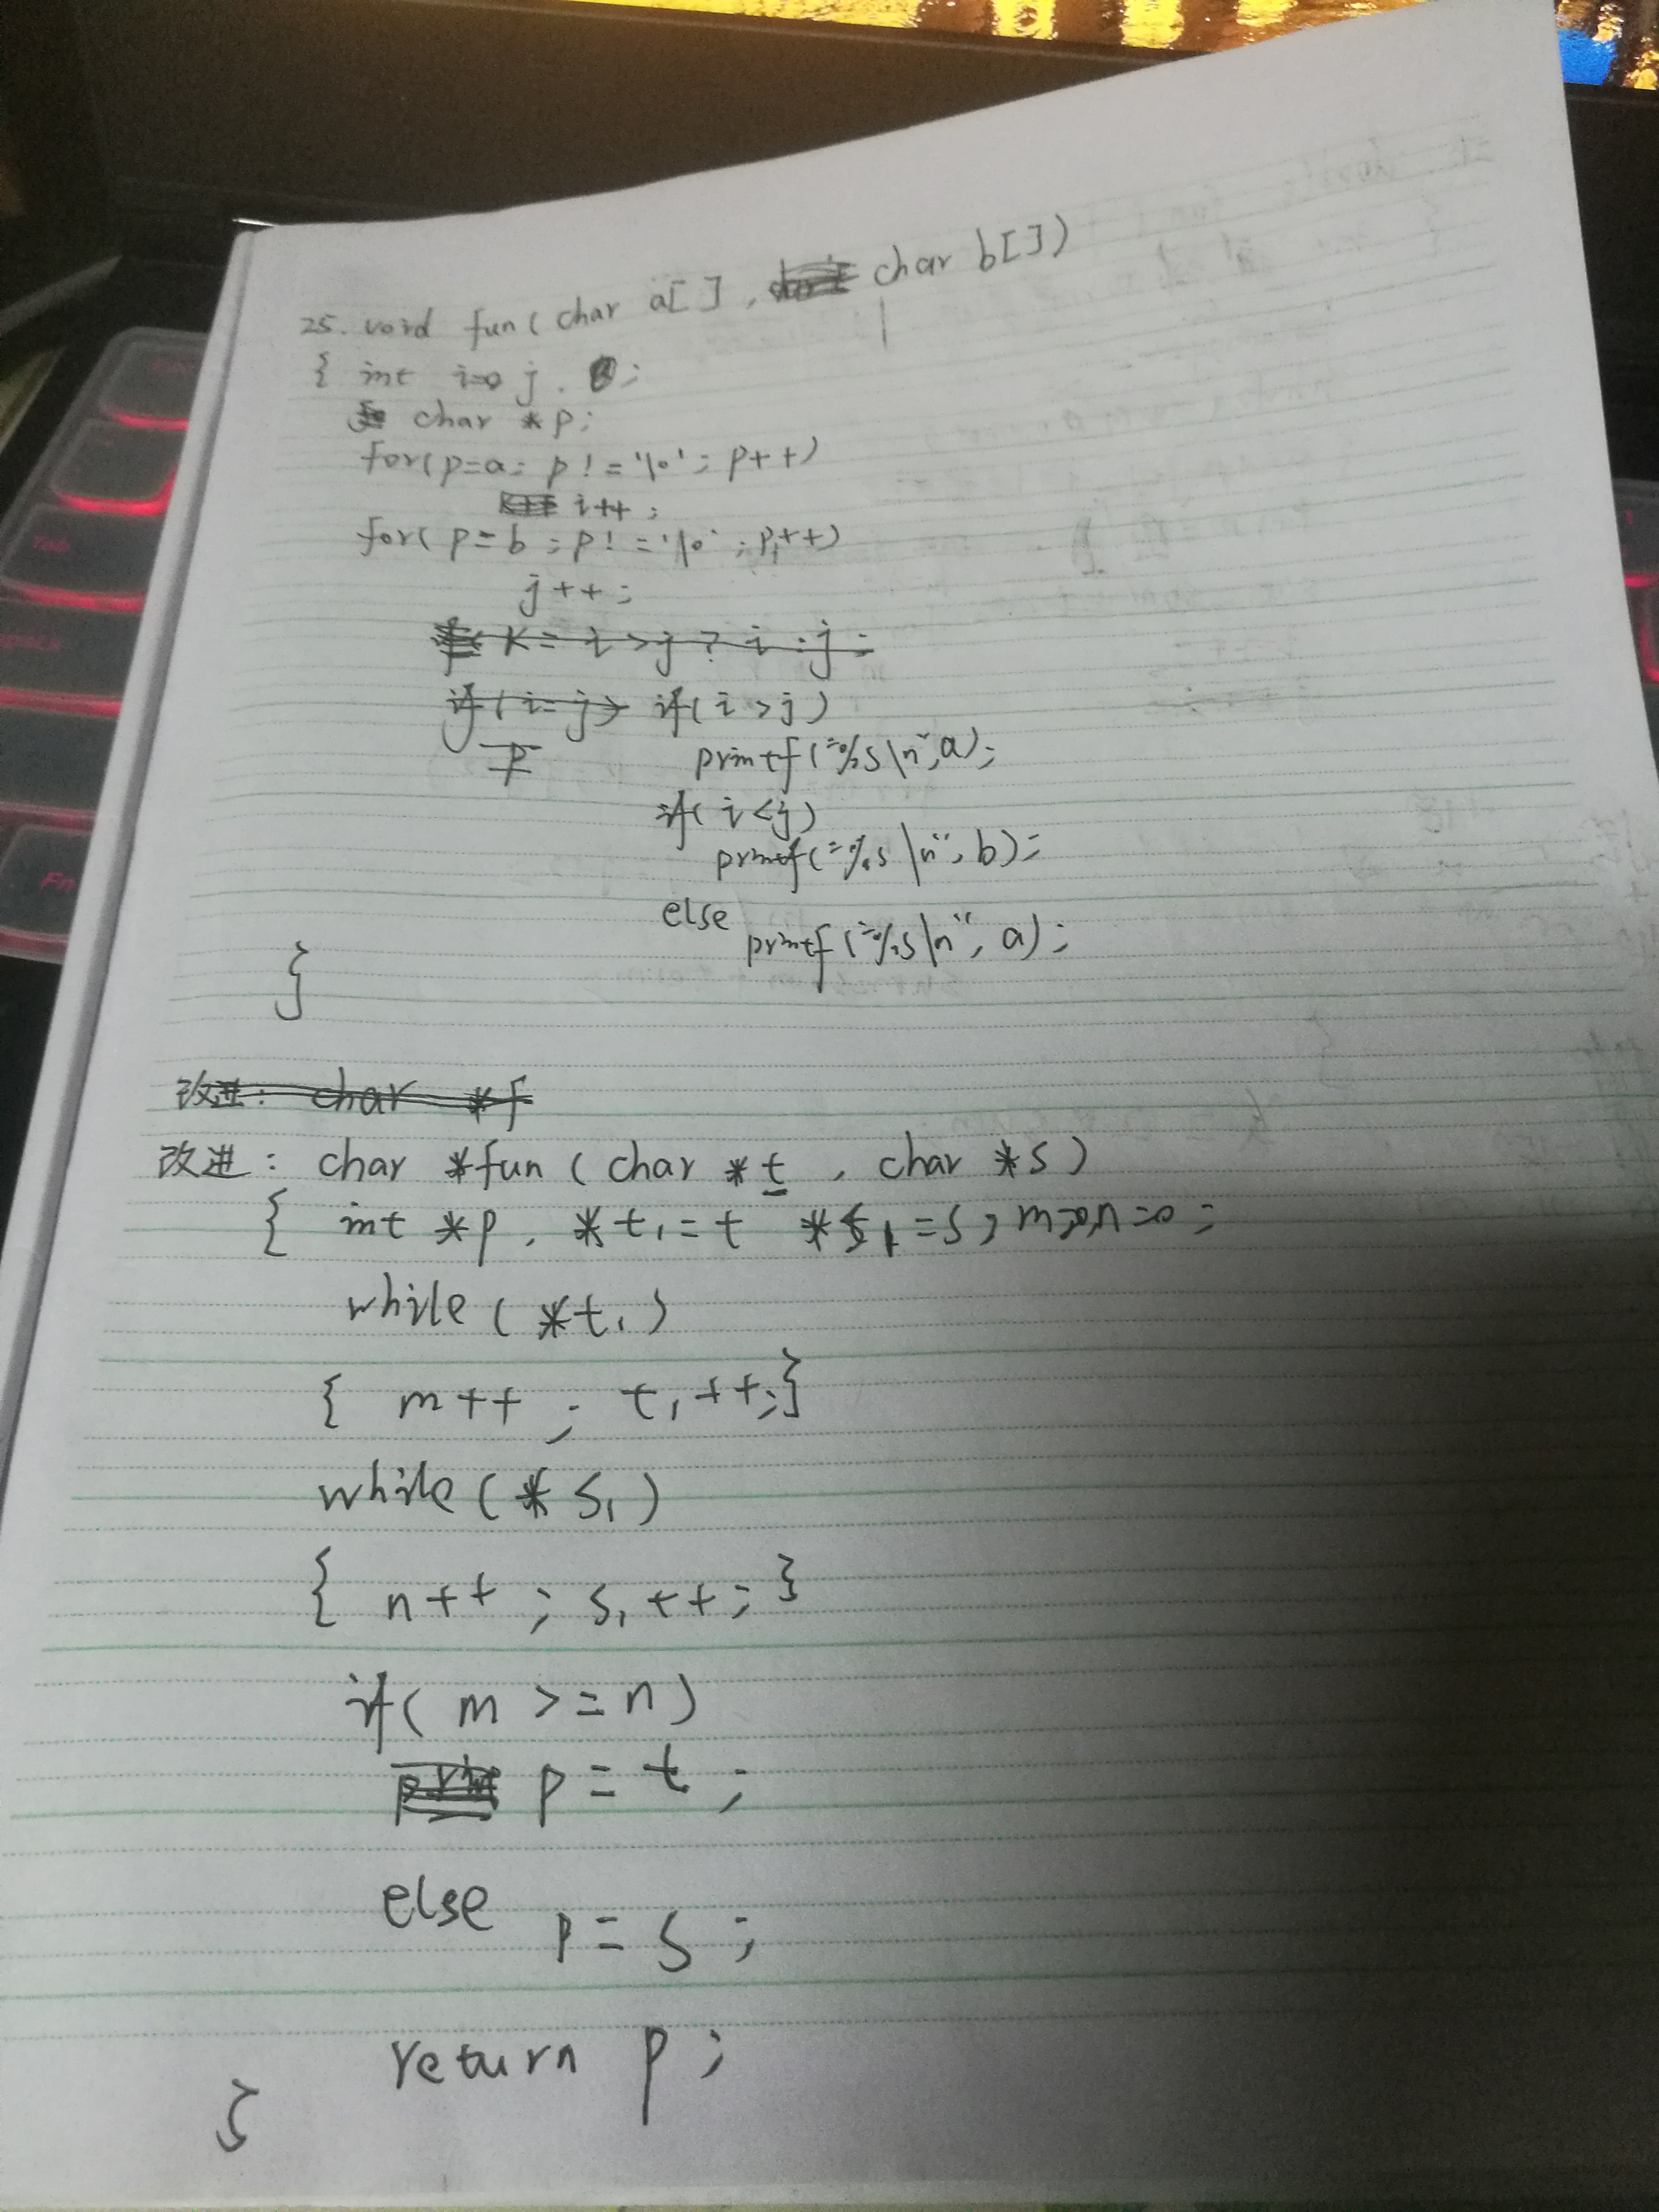 25. void fun(char a[], char b[])
{ int i=0 j.
char *p;
for(p=a; p!='\0'; p++)
i++;
for(p=b; p!='\0'; p++)
j++;
K=i>j?i:j;
if(i=j) if(i>j)
p printf("%s\n",a);
if(i<j)
printf("%s\n",b);
else
printf("%s\n",a);
}
改进: char *f
改进: char *fun(char *t, char *s)
{ int *p, *t1=t *s1=s, n=0;
while(*t1)
{ m++; t1++;}
while(*s1)
{ n++; s1++;}
if(m>=n)
p=t;
else p=s;
return p;
}